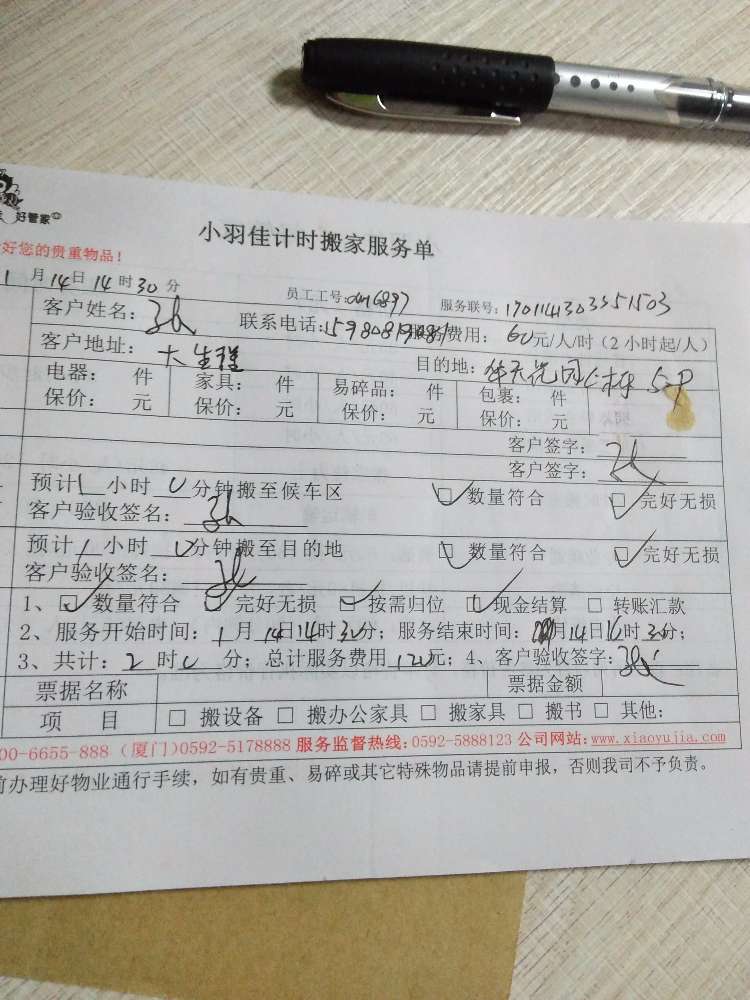 好管家
小羽佳计时搬家服务单
好您的贵重物品！
1月14日14时30分 员工工号: 服务联号:
客户姓名：张 联系电话: 服务费用：60元/人/时（2小时起/人）
客户地址：大生里 目的地：
电器： 件 家具： 件 易碎品： 件 包裹： 件
保价： 元 保价： 元 保价： 元 保价： 元
客户签字：张
客户签字：张
预计1小时0分钟搬至候车区 ☑数量符合 ☑完好无损
客户验收签名：张
预计1小时0分钟搬至目的地 ☑数量符合 ☑完好无损
客户验收签名：张
1、☑数量符合 ☑完好无损 ☑按需归位 ☑现金结算 □转账汇款
2、服务开始时间：1月14日14时30分；服务结束时间：月14日16时30分；
3、共计：2时0分；总计服务费用120元；4、客户验收签字：张
票据名称 票据金额
项 目 □搬设备 □搬办公家具 □搬家具 □搬书 □其他:
00-6655-888（厦门）0592-5178888 服务监督热线:0592-5888123 公司网站:www.xiaoyujia.com
前办理好物业通行手续，如有贵重、易碎或其它特殊物品请提前申报，否则我司不予负责。